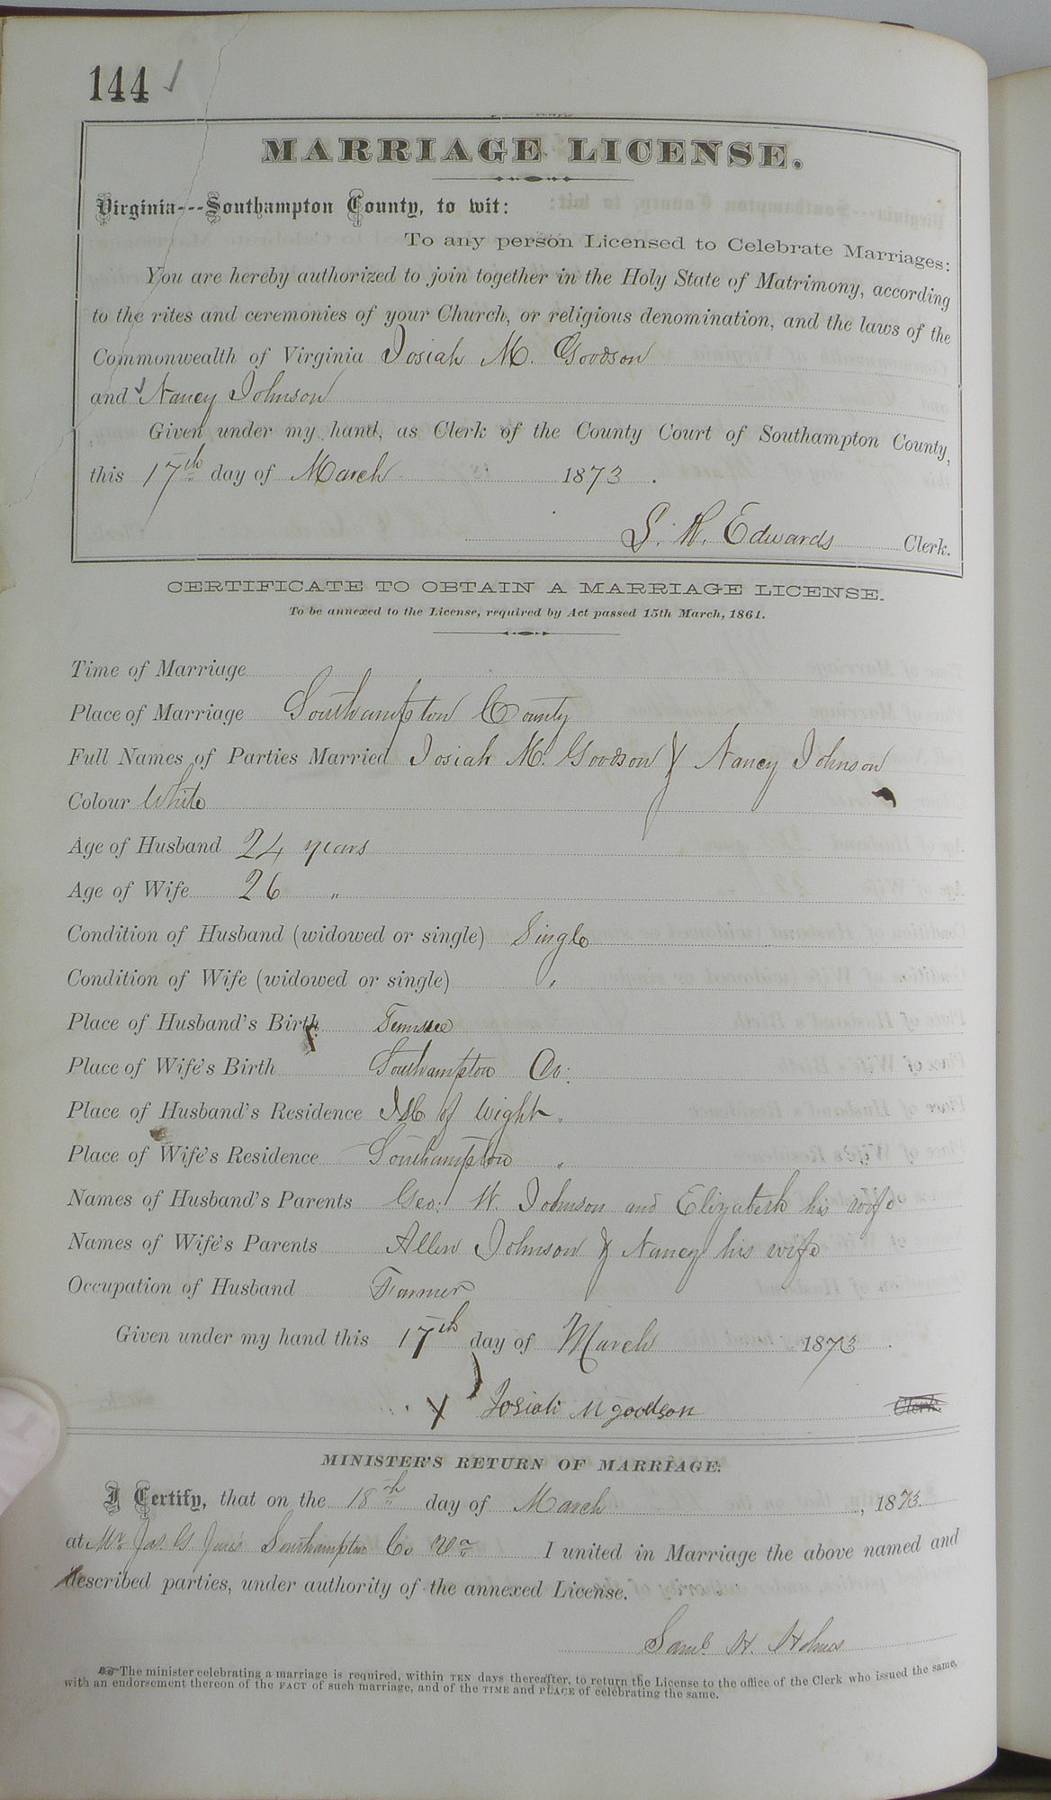 144
MARRIAGE LICENSE.
Virginia---Southampton County, to wit:
To any person Licensed to Celebrate Marriages:
You are hereby authorized to join together in the Holy State of Matrimony, according
to the rites and ceremonies of your Church, or religious denomination, and the laws of the
Commonwealth of Virginia Josiah M. Goodson
and Nancy Johnson
Given under my hand, as Clerk of the County Court of Southampton County,
this 17th day of March 1873.
L. R. Edwards Clerk.
CERTIFICATE TO OBTAIN A MARRIAGE LICENSE.
To be annexed to the License, required by Act passed 15th March, 1861.
Time of Marriage
Place of Marriage Southampton County
Full Names of Parties Married Josiah M. Goodson & Nancy Johnson
Colour White
Age of Husband 24 years
Age of Wife 26 "
Condition of Husband (widowed or single) Single
Condition of Wife (widowed or single) "
Place of Husband's Birth
Place of Wife's Birth Southampton Co:
Place of Husband's Residence of Wight "
Place of Wife's Residence Southampton "
Names of Husband's Parents Geo: W. Johnson and Elizabeth his wife
Names of Wife's Parents Allen Johnson & Nancy his wife
Occupation of Husband Farmer
Given under my hand this 17th day of March 1873.
X Josiah M goodson Clerk.
MINISTER'S RETURN OF MARRIAGE.
I Certify, that on the 18th day of March, 1873
at Mr Jas. Southampton Co Va I united in Marriage the above named and
described parties, under authority of the annexed License.
Saml. H. Holmes
The minister celebrating a marriage is required, within TEN days thereafter, to return the License to the office of the Clerk who issued the same,
with an endorsement thereon of the FACT of such marriage, and of the TIME and PLACE of celebrating the same.